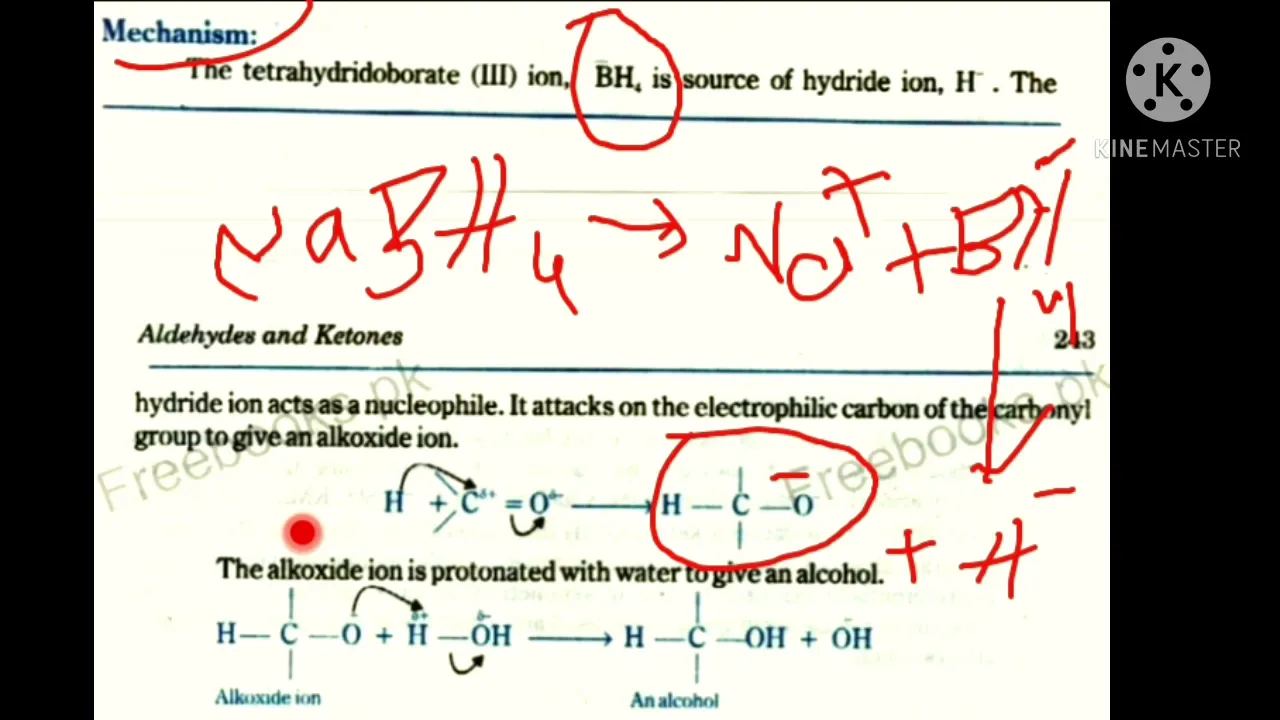 Mechanism:
The tetrahydridoborate (III) ion, B̄H₄ is source of hydride ion, H⁻ . The
K
KINEMASTER
NaBH4 → Na+ + BH4-
Aldehydes and Ketones
243
hydride ion acts as a nucleophile. It attacks on the electrophilic carbon of the carbonyl
group to give an alkoxide ion.
H + C δ+ = O δ- → H — C — O
+ H-
The alkoxide ion is protonated with water to give an alcohol.
H — C — O + H δ+ — O δ- H → H — C — OH + ŌH
Alkoxide ion
An alcohol
Freebooks.pk
Freebooks.pk